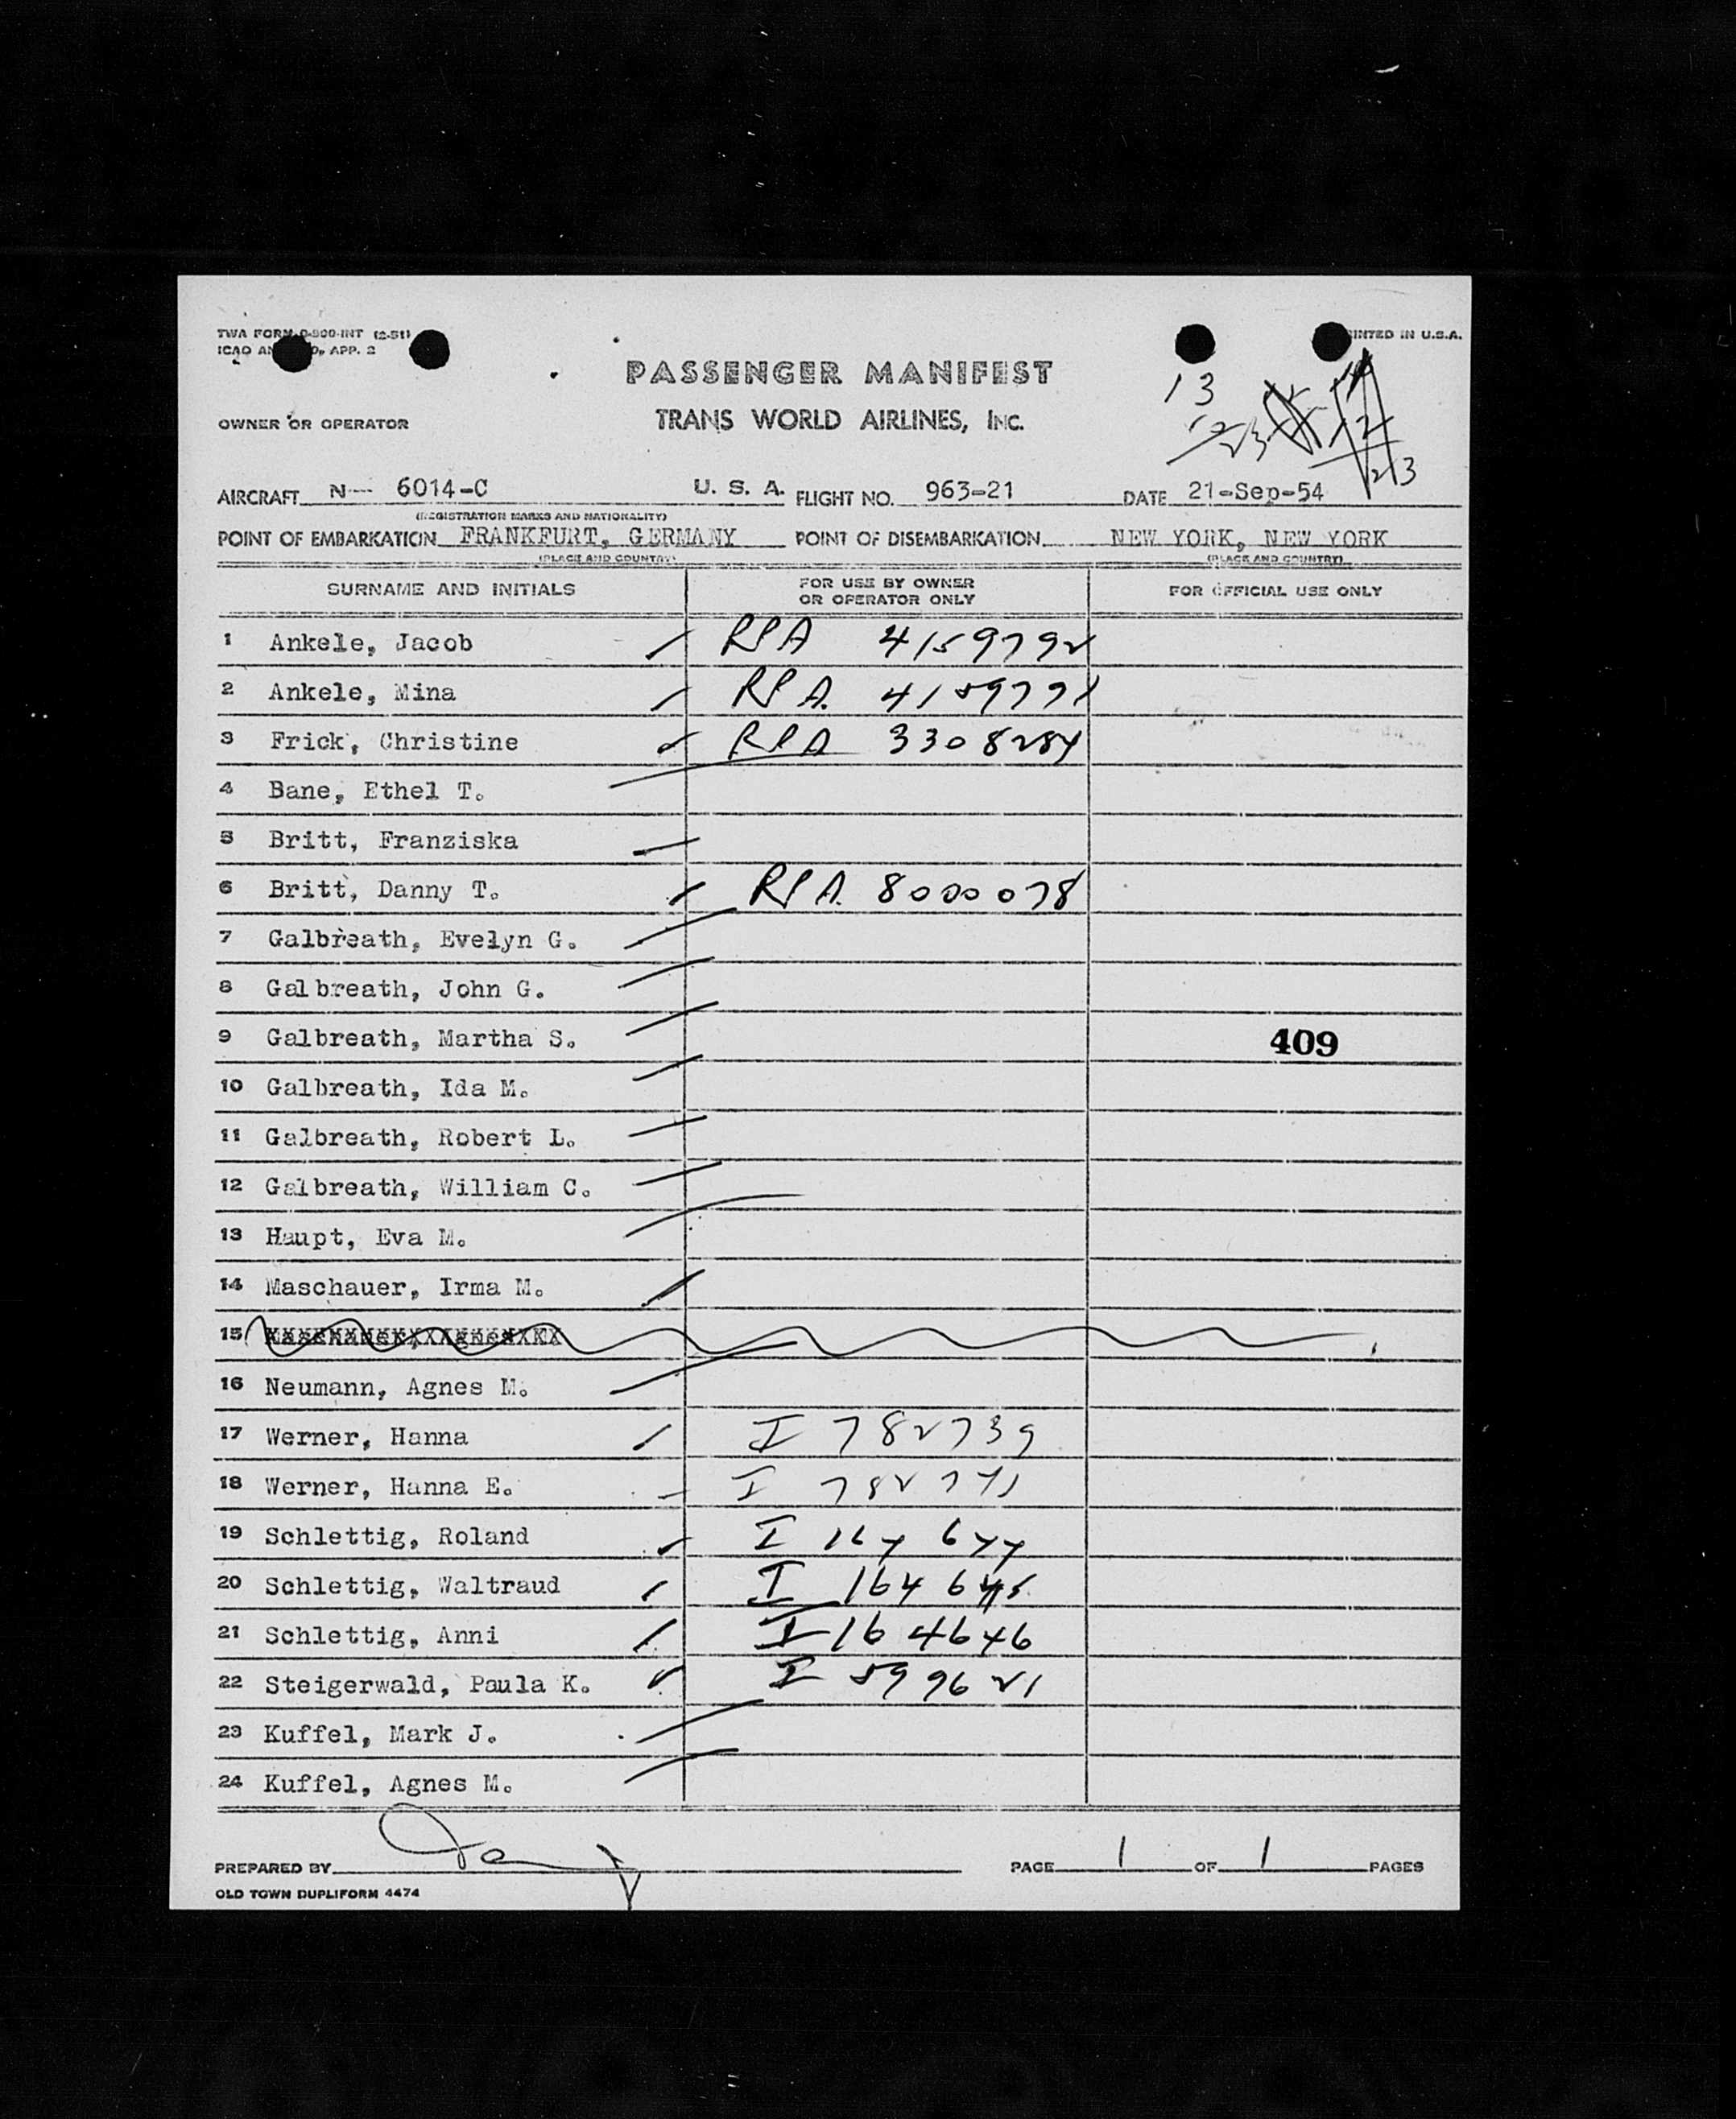 TWA FORM 0-500-INT (2-51)
PRINTED IN U.S.A.
ICAO AN 9, APP. 2
PASSENGER MANIFEST
13
OWNER OR OPERATOR
TRANS WORLD AIRLINES, INC.
AIRCRAFT N-- 6014-C U. S. A. FLIGHT NO. 963-21 DATE 21-Sep-54
(REGISTRATION MARKS AND NATIONALITY)
POINT OF EMBARKATION FRANKFURT, GERMANY POINT OF DISEMBARKATION NEW YORK, NEW YORK
(PLACE AND COUNTRY) (PLACE AND COUNTRY)
SURNAME AND INITIALS FOR USE BY OWNER OR OPERATOR ONLY FOR OFFICIAL USE ONLY
1 Ankele, Jacob RPA 4159792
2 Ankele, Mina RPA. 4159791
3 Frick, Christine RPA 3308284
4 Bane, Ethel T.
5 Britt, Franziska
6 Britt, Danny T. RPA. 8000078
7 Galbreath, Evelyn G.
8 Galbreath, John G.
9 Galbreath, Martha S. 409
10 Galbreath, Ida M.
11 Galbreath, Robert L.
12 Galbreath, William C.
13 Haupt, Eva M.
14 Maschauer, Irma M.
15
16 Neumann, Agnes M.
17 Werner, Hanna I 782739
18 Werner, Hanna E. I 782741
19 Schlettig, Roland I 164 644
20 Schlettig, Waltraud I 164 645
21 Schlettig, Anni I 164646
22 Steigerwald, Paula K. I 599621
23 Kuffel, Mark J.
24 Kuffel, Agnes M.
PREPARED BY PAGE 1 OF 1 PAGES
OLD TOWN DUPLIFORM 4474